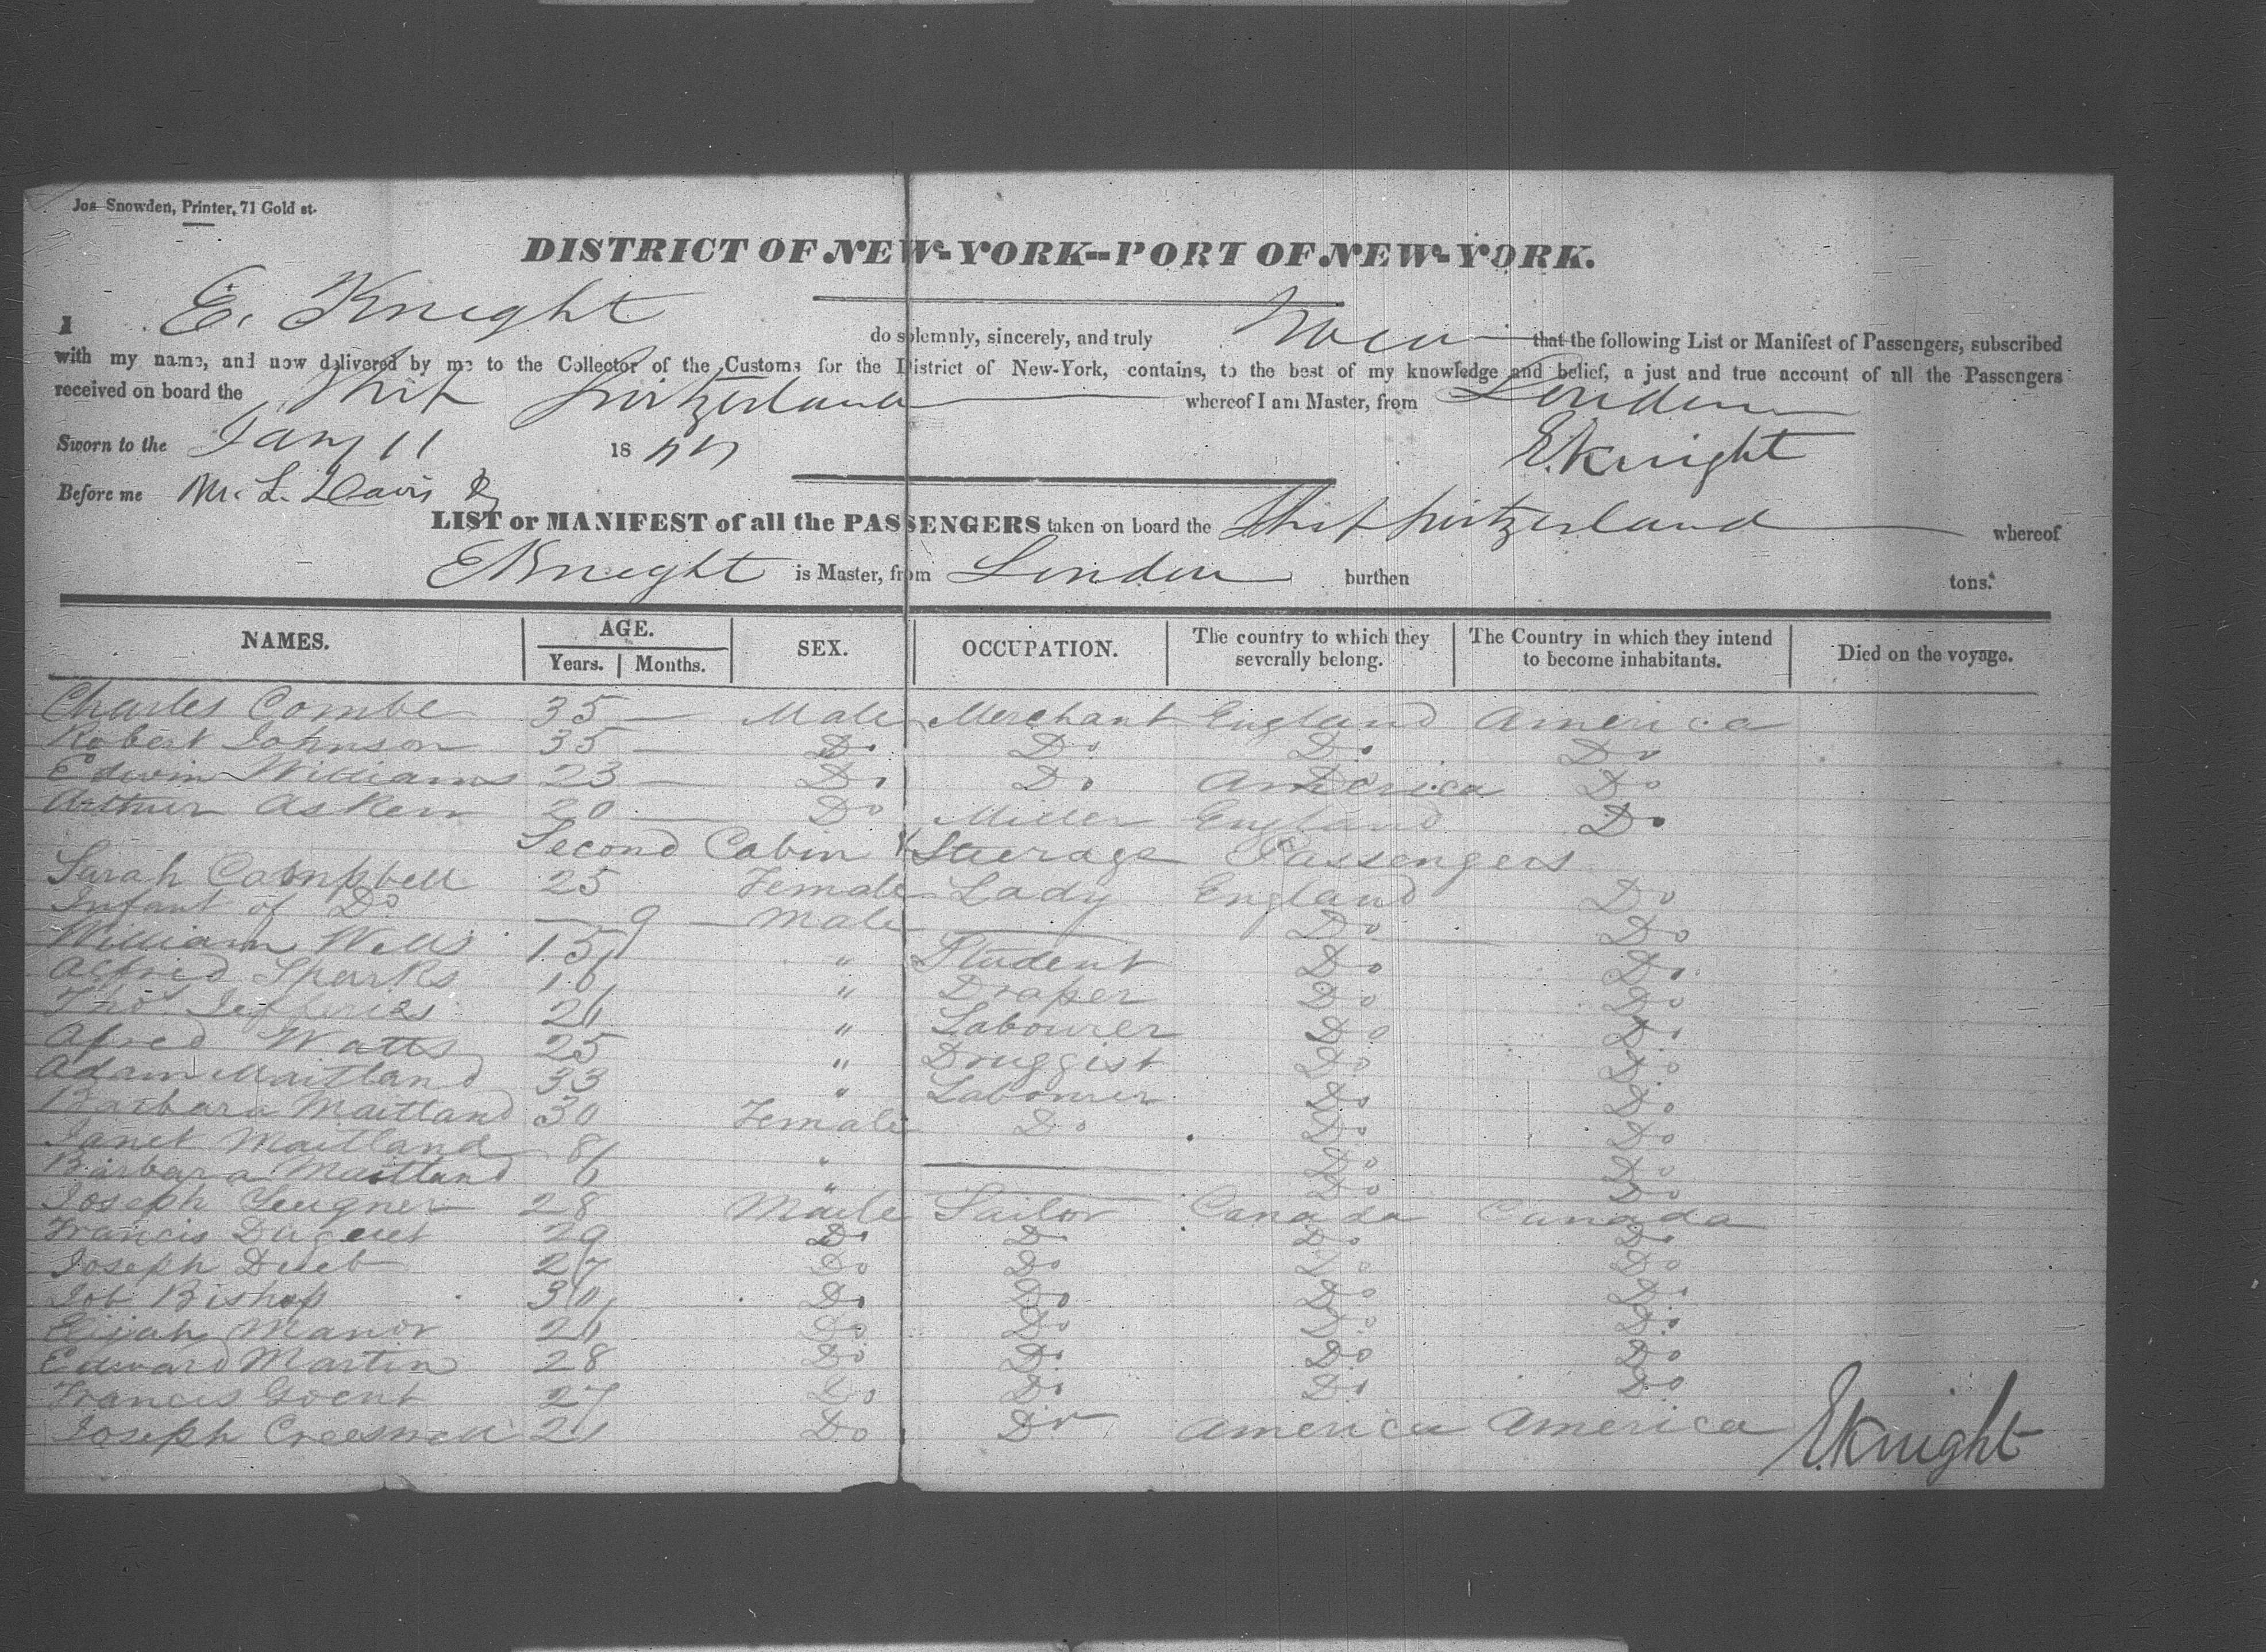 Jos Snowden, Printer, 71 Gold st.
DISTRICT OF NEW-YORK--PORT OF NEW-YORK.
I E. Knight do solemnly, sincerely, and truly that the following List or Manifest of Passengers, subscribed
with my name, and now delivered by me to the Collector of the Customs for the District of New-York, contains, to the best of my knowledge and belief, a just and true account of all the Passengers
received on board the Ship Switzerland whereof I am Master, from London
Sworn to the Jany 11 18 E. Knight
Before me M. L. Davis
LIST or MANIFEST of all the PASSENGERS taken on board the Ship Switzerland whereof
E Knight is Master, from London burthen tons.
NAMES. AGE. Years. Months. SEX. OCCUPATION. The country to which they severally belong. The Country in which they intend to become inhabitants. Died on the voyage.
Charles Combe 35 — Male Merchant England America
Robert Johnson 35 — Do Do Do Do
Edwin Williams 23 — Do Do America Do
Arthur Askew 20 — Do Miller England Do
Second Cabin & Steerage Passengers
Sarah Campbell 25 Female Lady England Do
Infant of Do — 9 — Male — Do Do
William Wells 15 " Student Do Do
Alfred Sparks 16 " Draper Do Do
Thos. Jefferies " Labourer Do Do
Alfred Watts 25 " Druggist Do Do
Adam Maitland 33 " Labourer Do Do
Barbara Maitland 30 Female Do Do Do
Janet Maitland 8 " — Do Do
Barbara Maitland 6 " — Do Do
Joseph 28 Male Sailor Canada Canada
Francis 29 Do Do Do Do
Joseph 27 Do Do Do Do
Job Bishop 30 Do Do Do Do
Elijah Manor Do Do Do Do
Edward Martin 28 Do Do Do Do
Francis 27 Do Do Do Do
Joseph Do Do America America
E. Knight